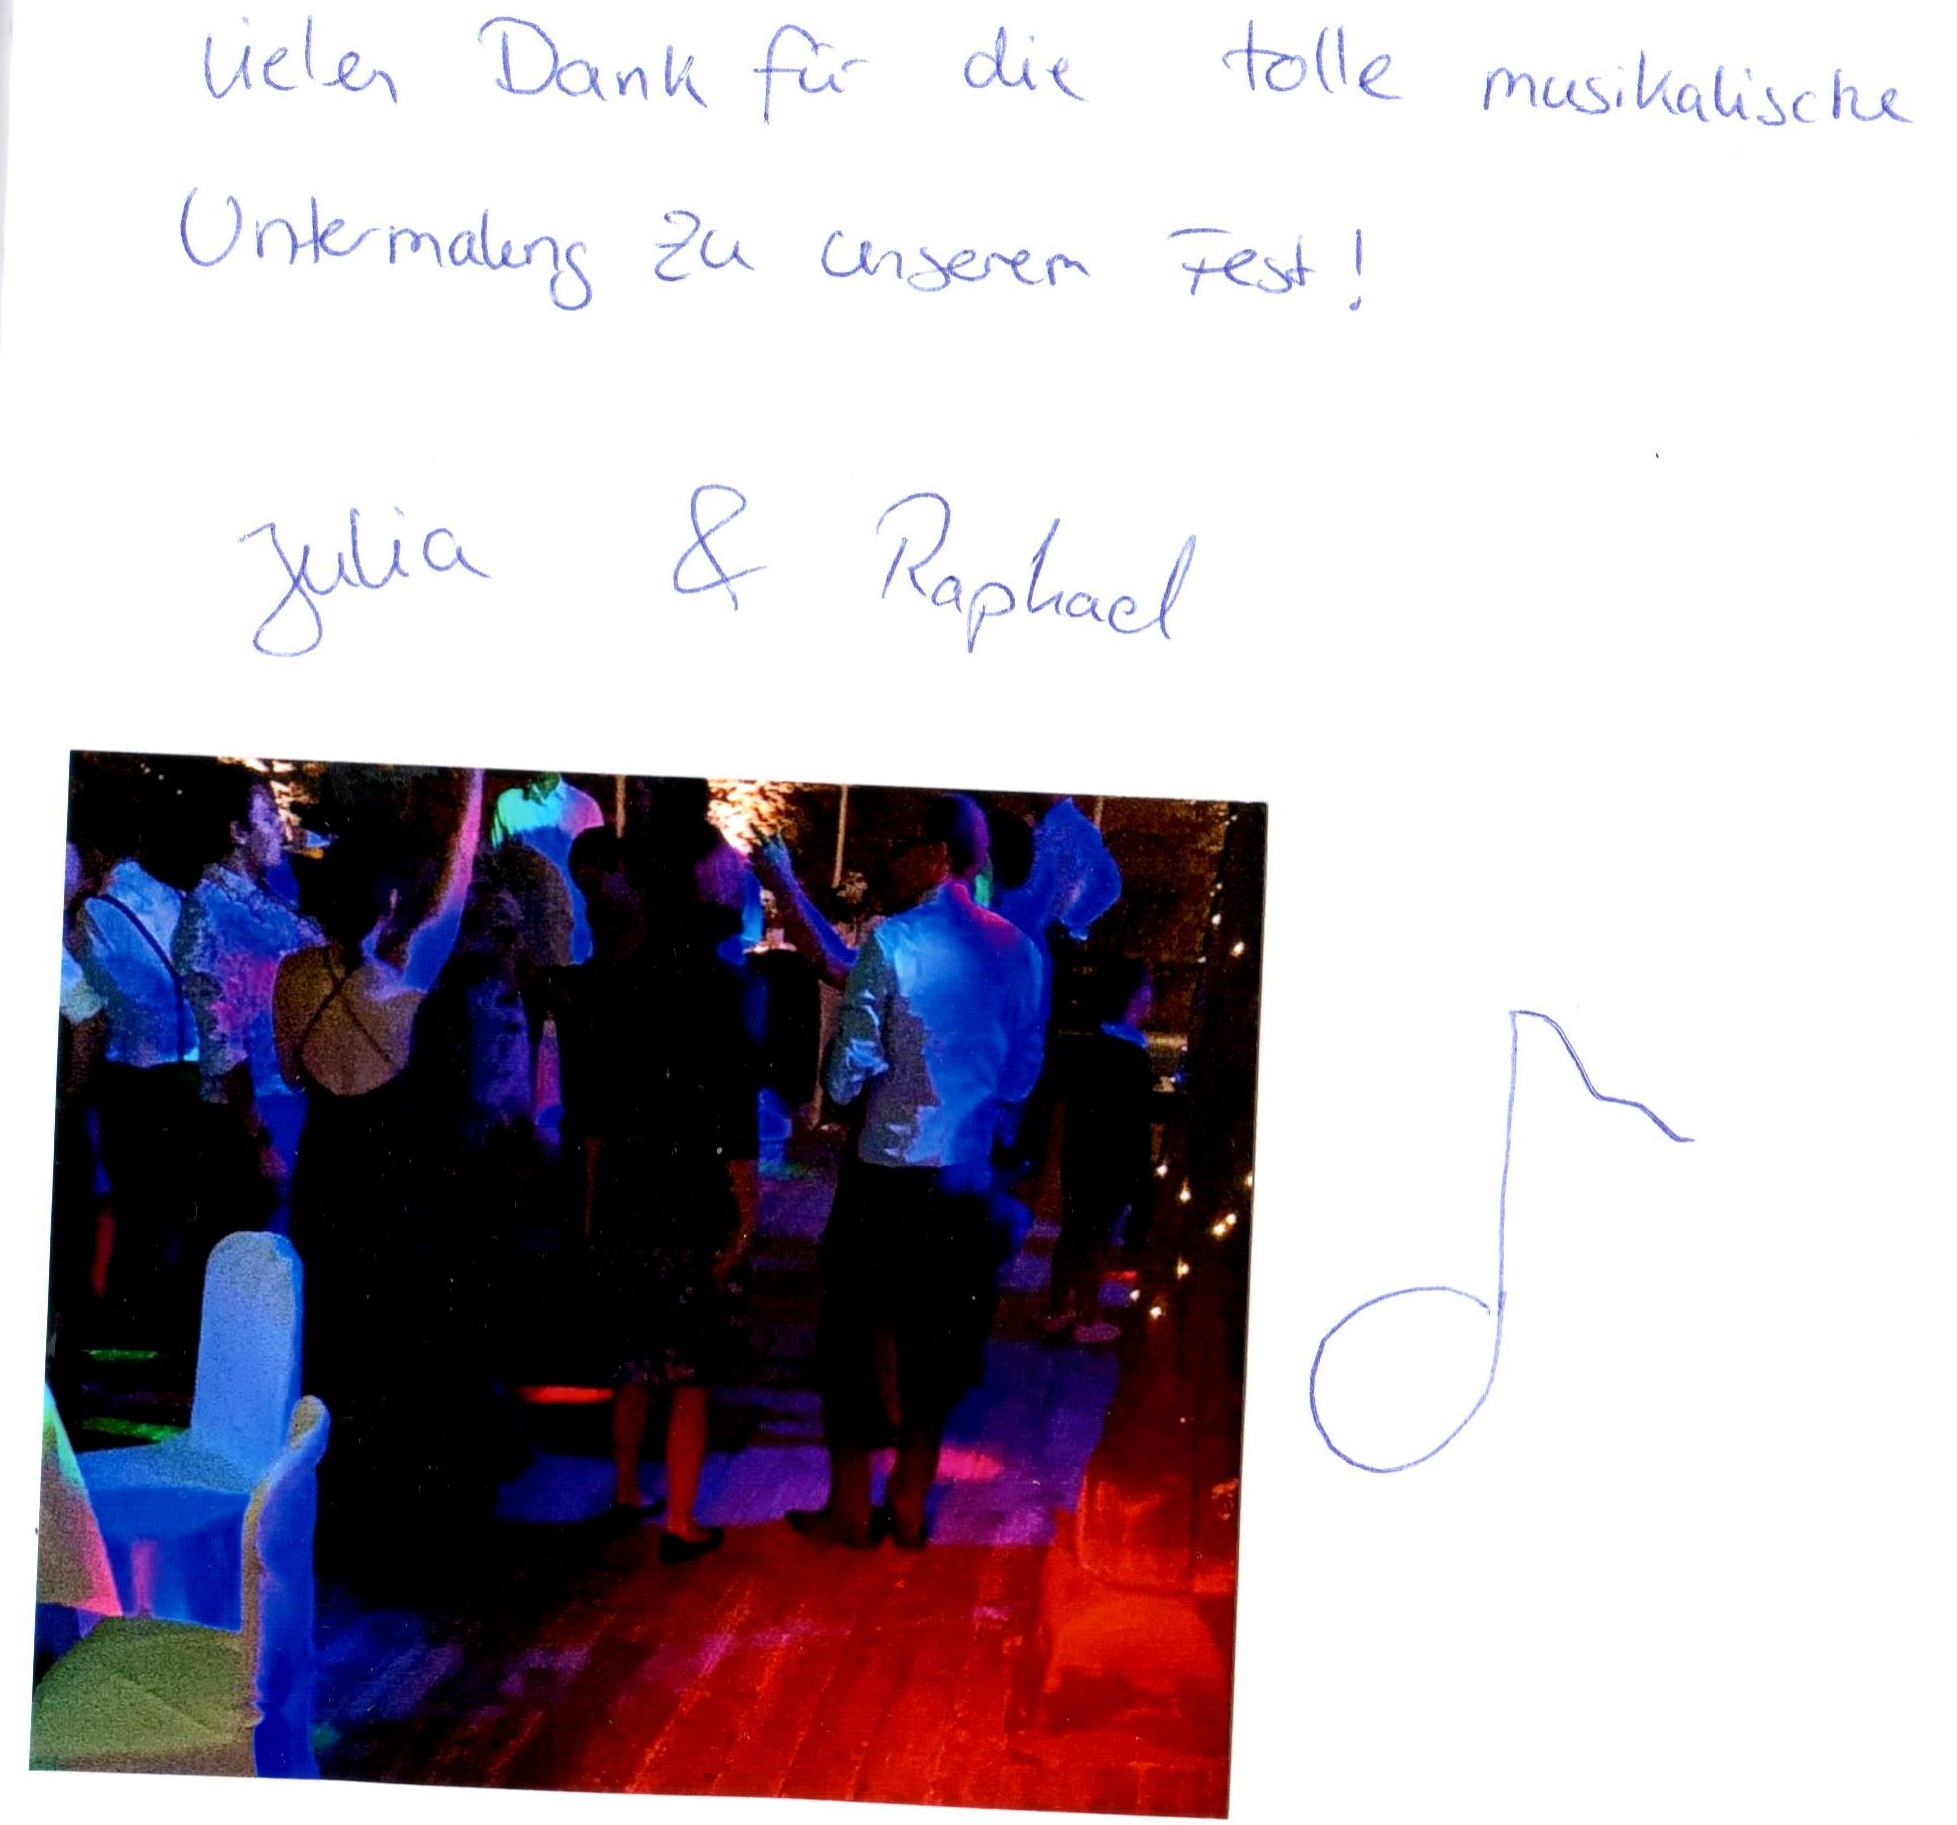 Vielen Dank für die tolle musikalische
Untermalung zu unserem Fest!
Julia & Raphael